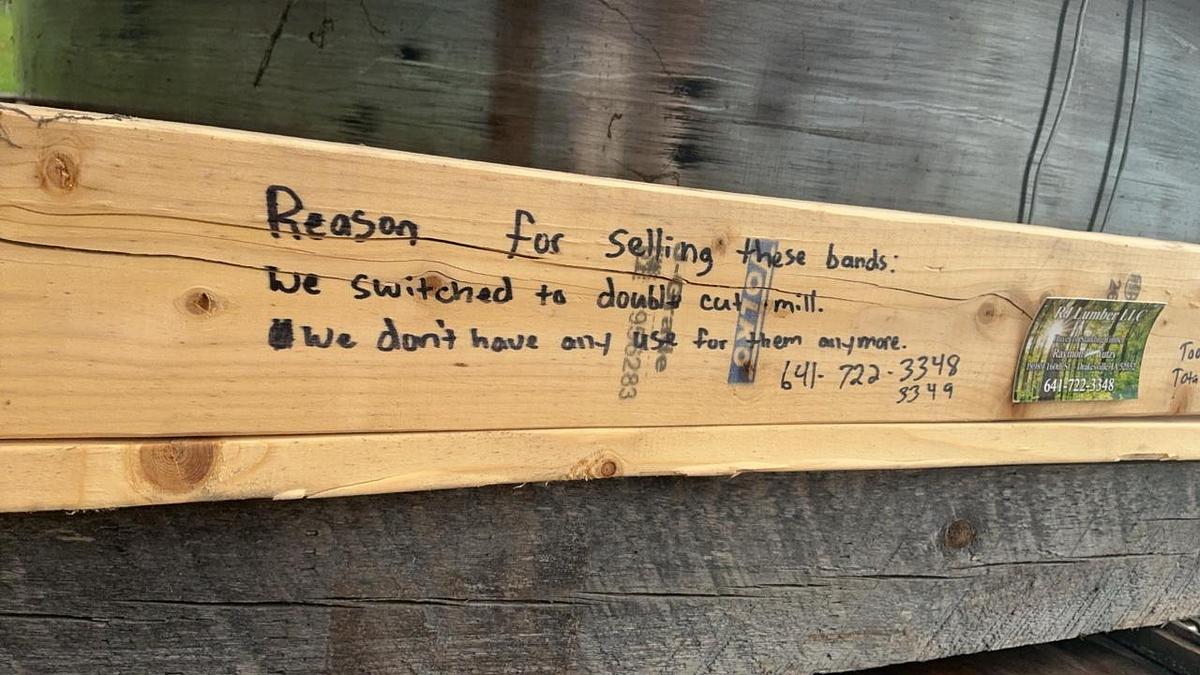 Reason for selling these bands:
We switched to double cut mill.
We don't have any use for them anymore.
641-722-3348
3349
RJ Lumber LLC
Buyer of Standing Timber
641-722-3348